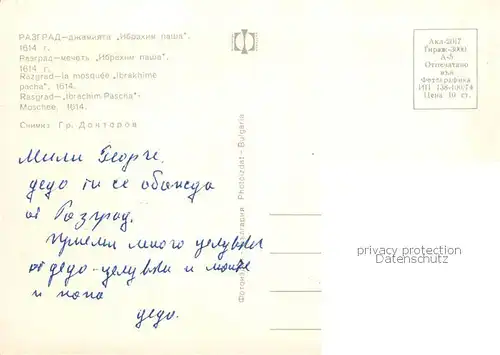 РАЗГРАД—джамията „Ибрахим паша“.
1614 г.
Разград—мечеть „Ибрахим паша“.
1614 г.
Razgrad—la mosquée „Ibrakhime
pacha“, 1614.
Rasgrad—„Ibrachim Pascha“-
Moschee, 1614.
Снимка Гр. Докторов
Мили Георги,
дедо ти се обажда
от Разград.
Приеми много целувки
от дедо - целувки и майка
и папа
дедо.
България Photoizdat - Bulgaria
Тираж-3000
А-6
Отпечатано
във
Фотографика
Цена 10 ст.
privacy protection
Datenschutz